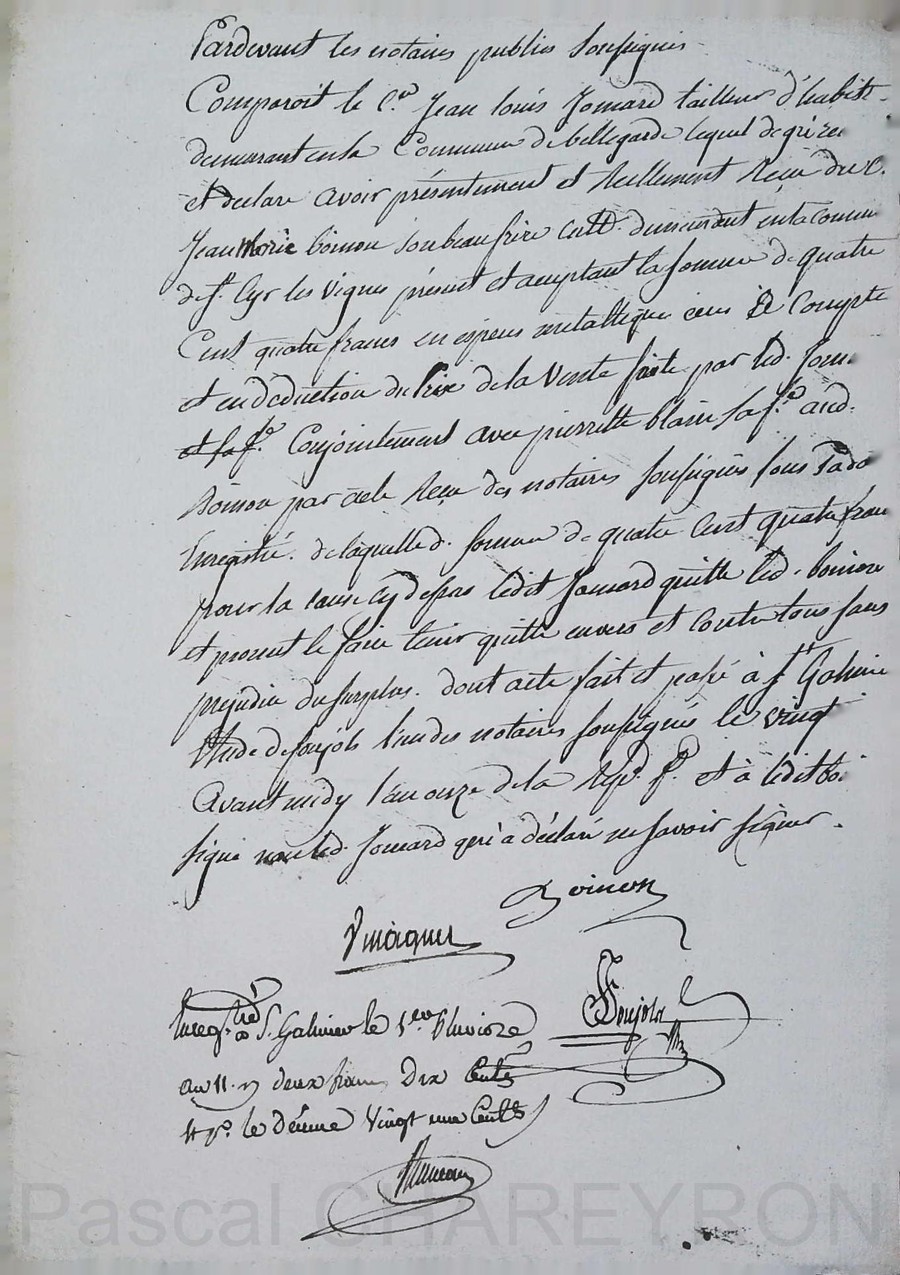 Pardevant les notaires publics soussignés
Comparoit le C.en Jean louis Jomard tailleur d'habits
demeurant en la Commune de bellegarde lequel de gré a
et declare avoir présentement et Reellement Reçu du C.
Jean Marie boinon son beau frère Cult. demeurant en la commune
de st. Cyr les Vignes présent et acceptant la somme de quatre
Cent quatre francs en especes metallique ceus à Compte
et en deduction du Prix de la Vente faite par led. Jom.
et sa f.e Conjointement avec pierrette blain sa f.e aud.
Boinon par acte Recu des notaires soussignés
Enregistré. de laquelle d. somme de quatre Cent quatre francs
pour la cause cy dessus ledit Jomard quitte led. boinon
et promet le faire tenir quitte envers et contre tous sans
prejudice du surplus. dont acte fait et passé à st Galmier
Etude de soujols l'un des notaires soussignés le vingt
Avant midy l'an onze de la Rep. f.e et à ledit boi
signé non led. Jomard qui a déclaré ne savoir signer.
Boinon
Soujols
Enreg.tré à St. Galmier le 1.er Pluviose
an 11. deux francs dix Cent.s
le décime Vingt une Cent.s